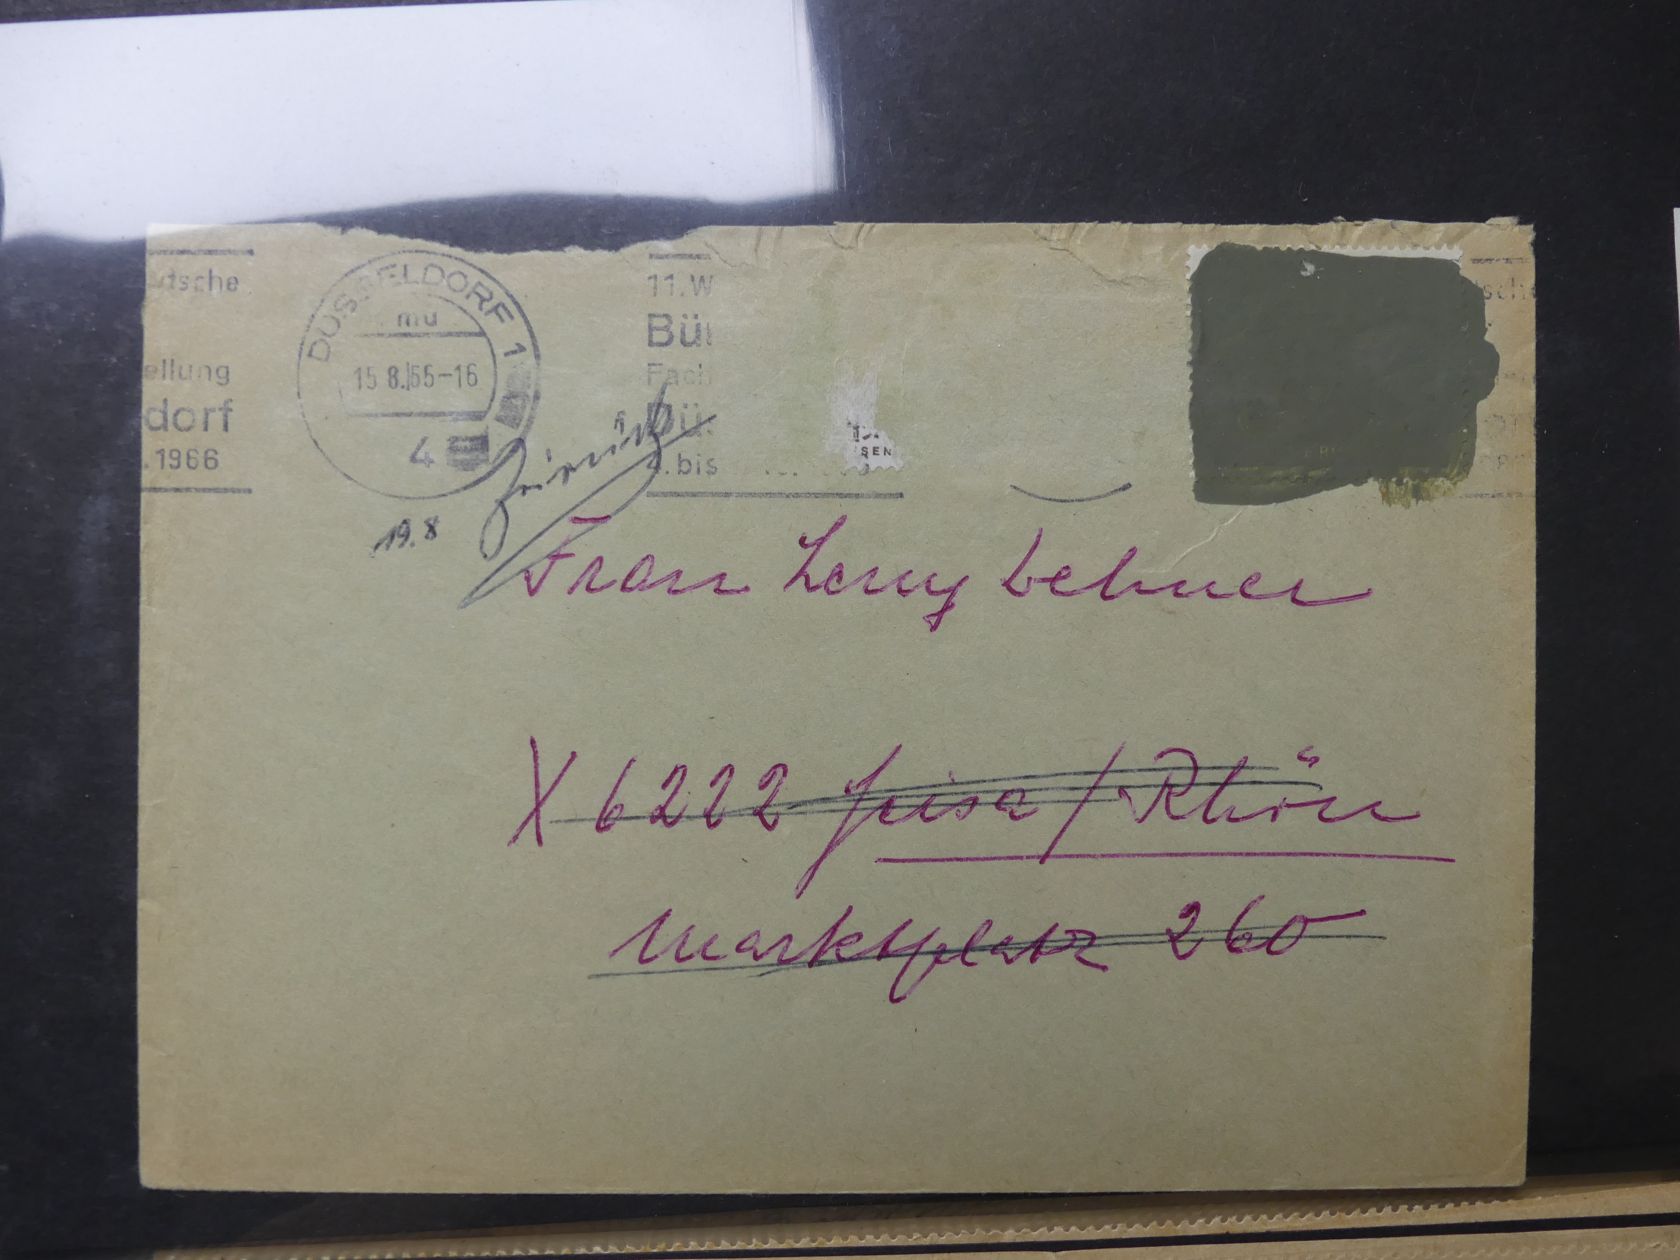 tsche
ellung
dorf
.1966
DÜSSELDORF 1
mu
15 8. 65-16
4
11.W
Bü
Fach
Dü
.bis
SEN
zurück
19.8
Frau Leny Lehner
X 6222 Geisa / Rhön
Marktplatz 260